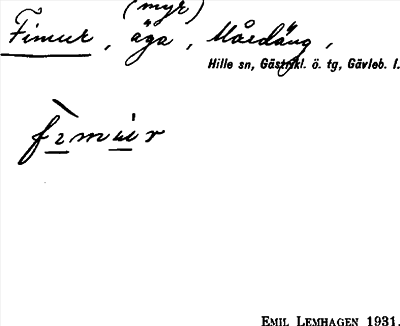 (myr)
Fimur, äga, Mårdäng,
Hille sn, Gästrikl. ö. tg, Gävleb. l.
fìmùr
EMIL LEMHAGEN 1931.